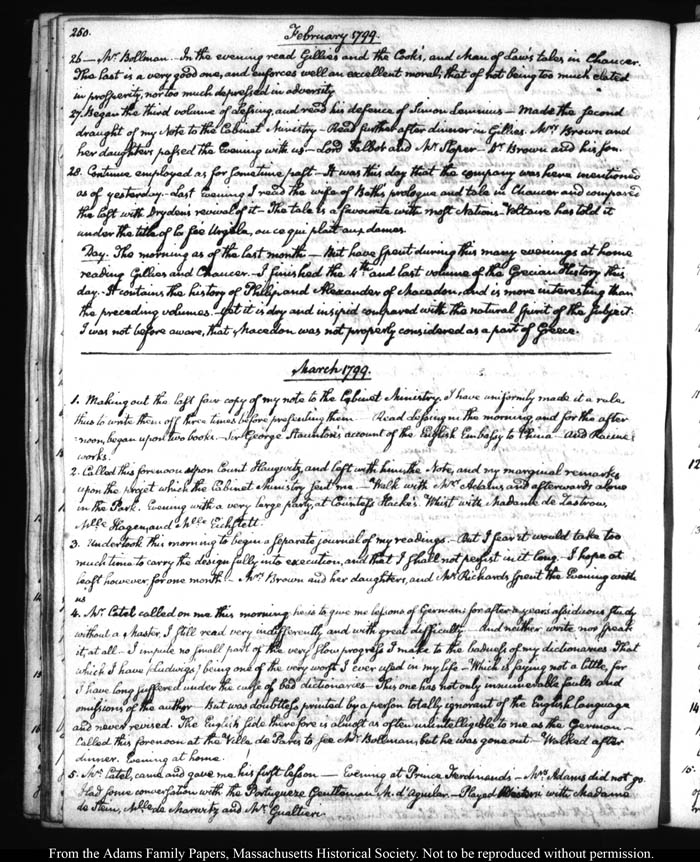 260.
February 1799.
26 — Mr Bollman. In the evening read Gillies and the Cook's, and Man of Law's tales in Chaucer.
The last is a very good one, and enforces well an excellent moral; that of not being too much elated
in prosperity, nor too much depressed in adversity
27. Began the third volume of Lessing, and read his defence of Simon Lemnius — Made the second
draught of my Note to the Cabinet Ministry — Read further after dinner in Gillies. Mrs Brown and
her daughters passed the Evening with us — Lord Talbot and Mr Sloper — Dr Brown and his son.
28. Continue employed as for sometime past — It was this day that the company was here mentioned
as of yesterday. Last Evening I read the wife of Bath's prologue and tale in Chaucer and compared
the last with Dryden's revival of it — The tale is a favourite with most Nations. Voltaire has told it
under the title of la fée Urgele, ou ce qui plait aux dames.
Day. The morning as of the last month — But have spent during this many evenings at home
reading Gillies and Chaucer. I finished the 4th and last volume of the Grecian History this
day. It contains the history of Philip and Alexander of Macedon, and is more interesting than
the preceding volumes. Yet it is dry and insipid compared with the natural Spirit of the Subject.
I was not before aware, that Macedon was not properly considered as a part of Greece.
March 1799.
1. Making out the last fair copy of my note to the Cabinet Ministry. I have uniformly made it a rule
thus to write them off three times before presenting them — Read Lessing in the morning, and for the after
noon, began upon two books — Sir George Staunton's account of the English Embassy to China — And Racine's
works.
2. Called this forenoon upon Count Haugwitz, and left with him the Note, and my marginal remarks
upon the projet which the Cabinet Ministry sent me — Walk with Mrs Adams and afterwards alone
in the Park. Evening with a very large party, at Countess Hacke's. Whist with Madame de Zastrow,
Mlle Hagen and Mlle Eichstett.
3. Undertook this morning to begin a separate journal of my readings. But I fear it would take too
much time to carry the design fully into execution, and that I shall not persist in it long. I hope at
least however for one month — Mrs Brown and her daughters, and Mr Richards spent the Evening with
us
4. Mr Catel called on me this morning he is to give me lessons of German; for after a years assiduous study
without a Master I still read very indifferently, and with great difficulty — And neither write nor speak
it at all — I impute no small part of the very slow progress I make to the badness of my dictionaries. That
which I have (Ludwigs) being one of the very worst I ever used in my life — Which is saying not a little, for
I have long suffered under the curse of bad dictionaries — This one has not only innumerable faults and
omissions of the author — But was doubtless printed by a person totally ignorant of the English language
and never revised. The English side therefore is almost as often unintelligible to me as the German —
Called this forenoon at the Ville de Paris to see Mr Bollman, but he was gone out. Walked after
dinner. Evening at home.
5. Mr Catel, came and gave me his first lesson — Evening at Prince Ferdinands — Mrs Adams did not go.
Had some conversation with the Portugueze Gentleman M. d'Aguilar. — Played with Madame
de Stein, Mlle de Marwitz and Mr Gualtieri.
From the Adams Family Papers, Massachusetts Historical Society. Not to be reproduced without permission.